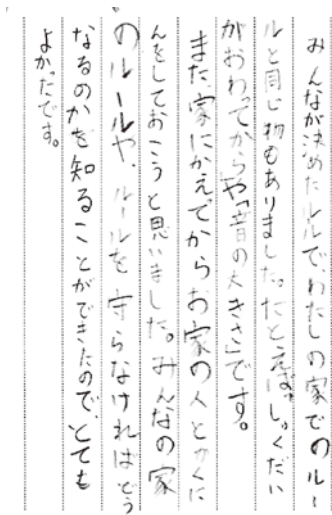 みんなが決めたルルで、わたしの家でのルー
ルと同じ物もありました。たとえば、「しょくだい
がおわってからや「音の大きさ」です。
また家にかえてからお家の人とかくに
んをしておこうと思いました。みんなの家
のルールや、ルールを守らなければどう
なるのかを知ることができたので、とても
よかったです。